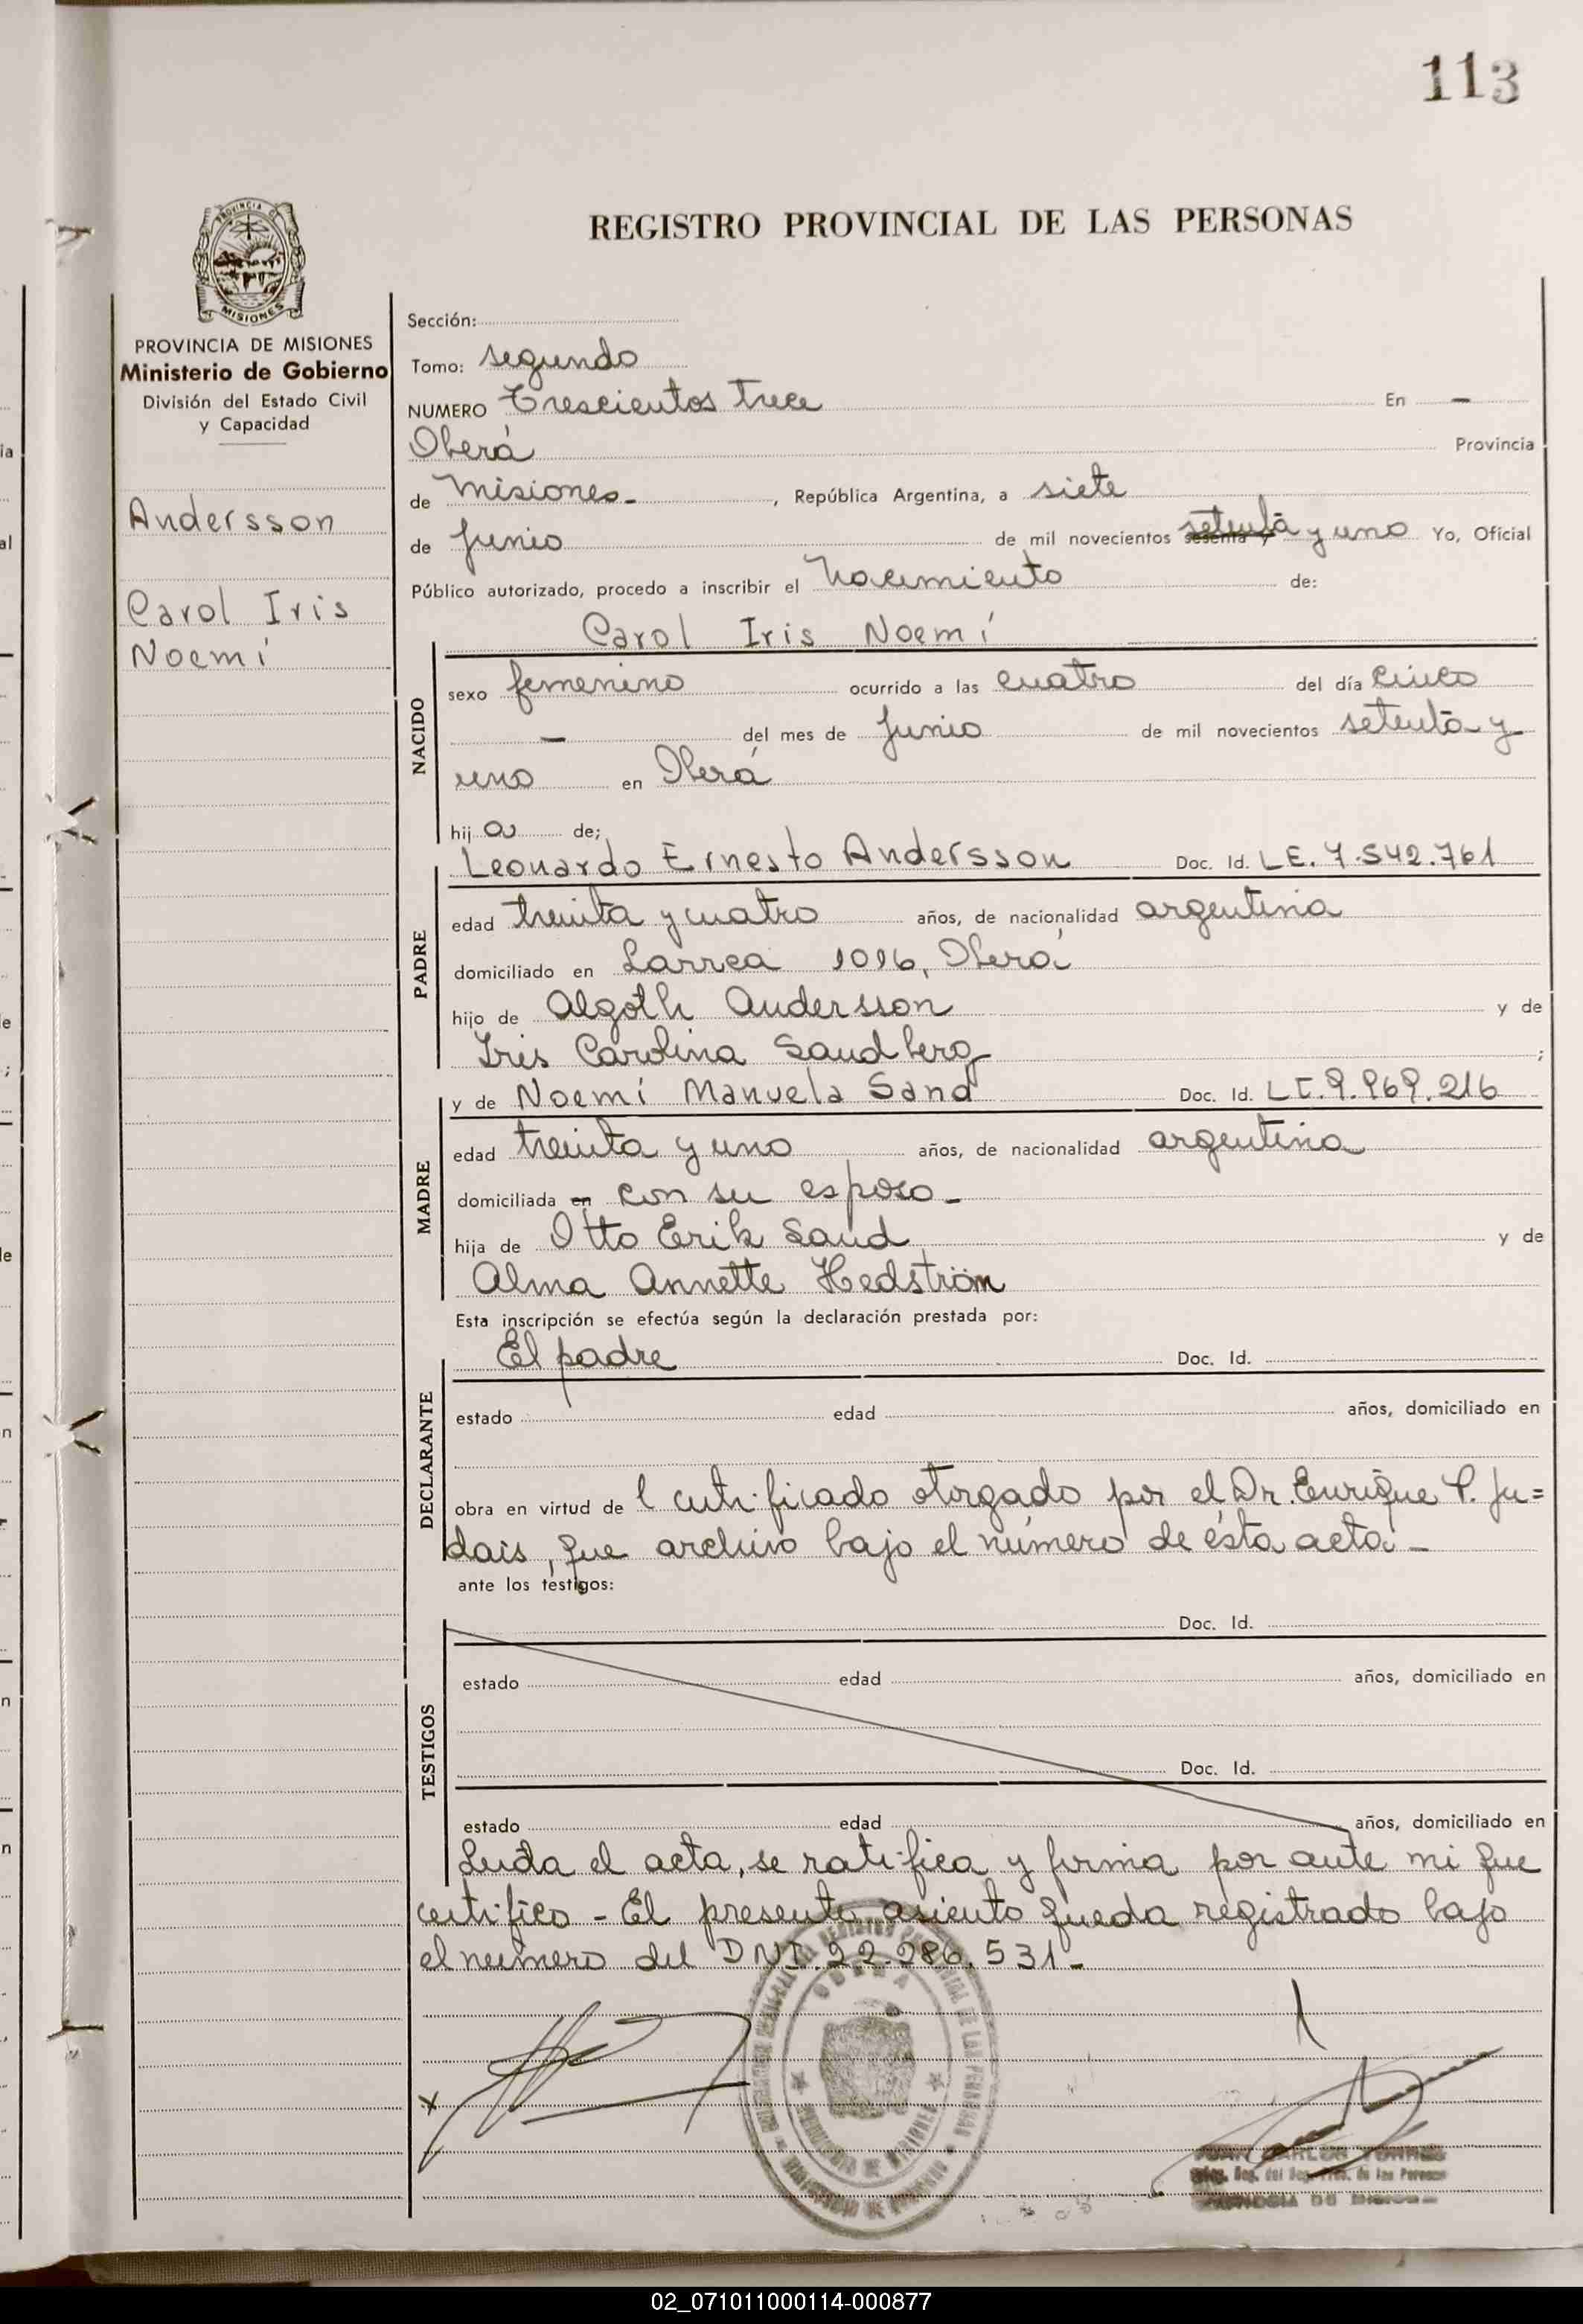 113
PROVINCIA DE
MISIONES
REGISTRO PROVINCIAL DE LAS PERSONAS
PROVINCIA DE MISIONES
Ministerio de Gobierno
División del Estado Civil
y Capacidad
Andersson
Carol Iris
Noemí
Sección:
Tomo: segundo
NUMERO Trescientos trece En —
Oberá Provincia
de Misiones- , República Argentina, a siete
de Junio de mil novecientos sesenta y setenta y uno Yo, Oficial
Público autorizado, procedo a inscribir el Nacimiento de:
Carol Iris Noemí
NACIDO
sexo femenino ocurrido a las cuatro del día cinco
— del mes de Junio de mil novecientos setenta y
uno en Oberá
hij a de;
PADRE
Leonardo Ernesto Andersson Doc. Id. L.E. 7.542.761
edad treinta y cuatro años, de nacionalidad argentina
domiciliado en Larrea 1016, Oberá
hijo de Algoth Andersson y de
Iris Carolina Sandberg ;
MADRE
y de Noemí Manuela Sand Doc. Id. L.C. 9.969.216
edad treinta y uno años, de nacionalidad argentina
domiciliada en con su esposo-
hija de Otto Erik Sand y de
Alma Annette Hedström
Esta inscripción se efectúa según la declaración prestada por:
DECLARANTE
El padre Doc. Id.
estado edad años, domiciliado en
obra en virtud de l certificado otorgado por el Dr. Enrique P. Ju=
dais, que archivo bajo el número de ésta acta.-
ante los testigos:
TESTIGOS
Doc. Id.
estado edad años, domiciliado en
Doc. Id.
estado edad años, domiciliado en
Leída el acta, se ratifica y firma por ante mi que
certifico - El presente asiento queda registrado bajo
el número del D.N.I. 22.286.531-
x
OBERA
PROVINCIA DE MISIONES
JUAN CARLOS TORRES
02_071011000114-000877